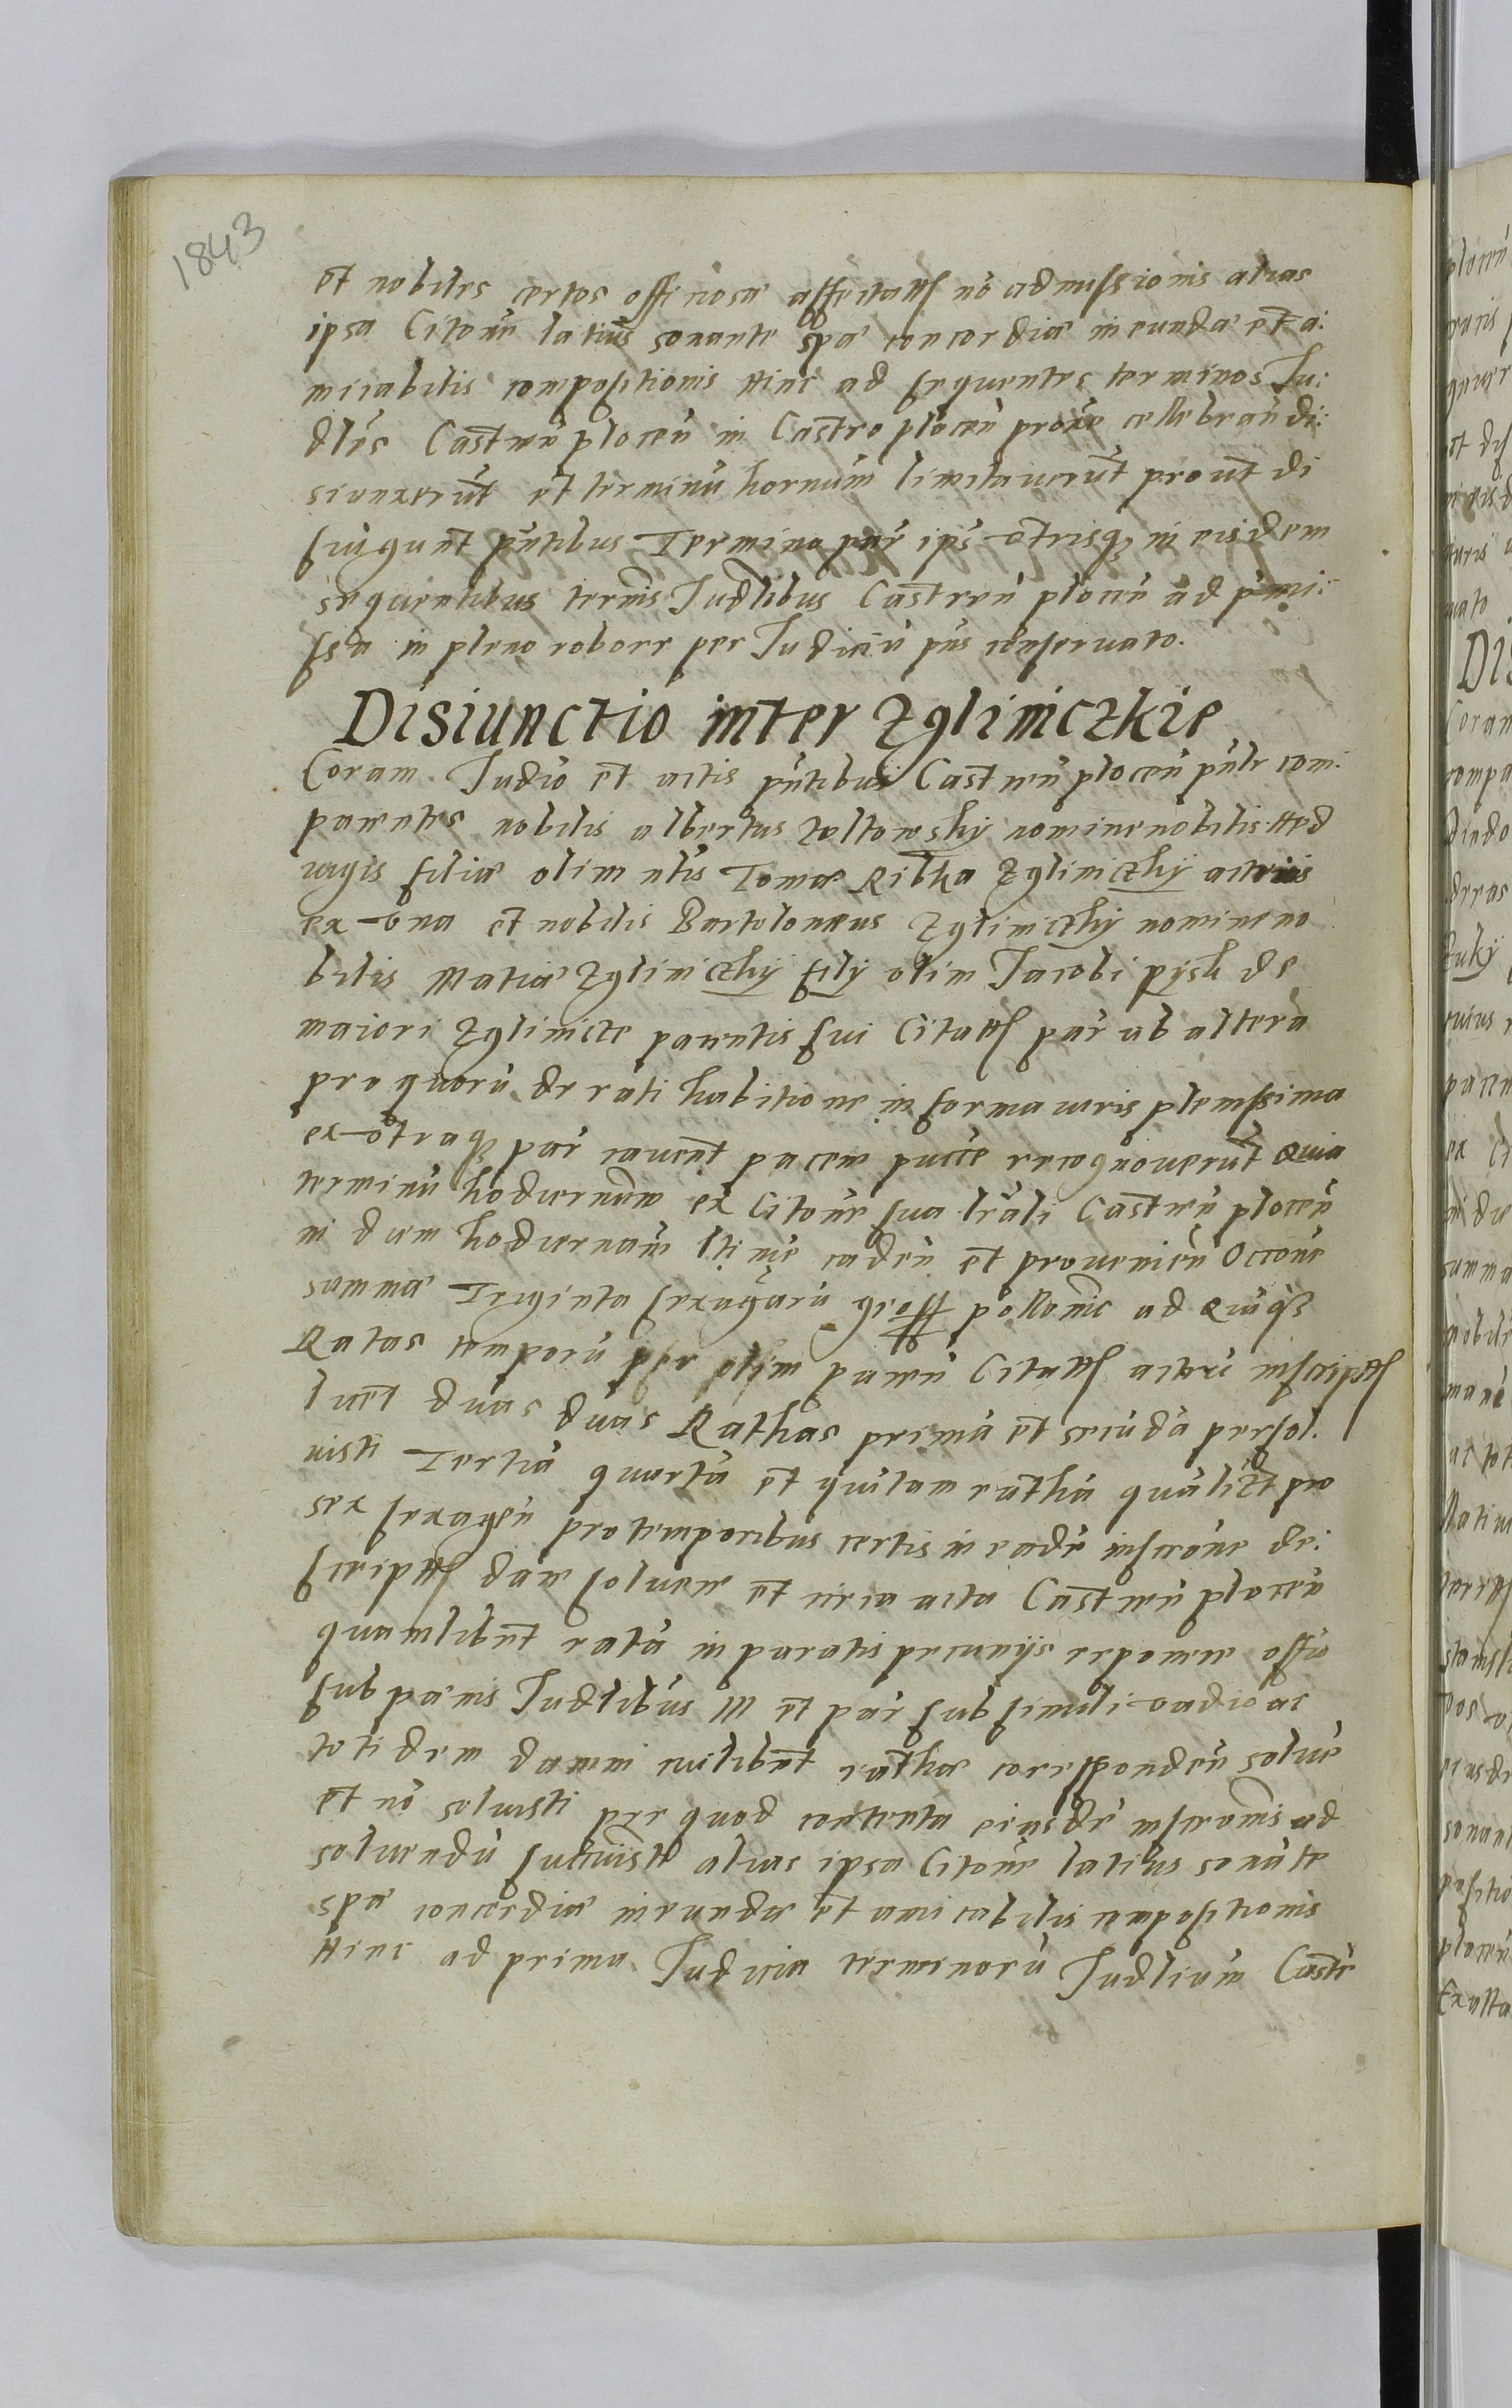 1843
et nobiles certos officiose affectatſ nō admissionis alias
ipsa Citoñe latius sonante spæ concordiæ ineundæ et a:
micabilis compositionis Hinc ad sequentes terminos Ju:
dl̃es Castreñ ploceñ in Castro ploceñ proxe cellebrandi:
siunxerūt et terminū hornum limitaverūt prout di
siungunt pñtibus Termino par ips utrisq3 in eisdem
sequentibus termis Judlibus Castreñ ploceñ ad pmi:
ssa in pleno robore per Judiciū pns conservato.
Disiunctio inter Zgliniczkie
Coram Judio et actis pñtibus Castreñ ploceñ pñlr com:
parentes nobilis albertus Zoltowsky nomine nobilis Hed
vigis filiæ olim nlis Tomæ Ribka Zgliniczky actricis
ex una et nobilis Bartolomeus Zgliniczky nomine no
bilis Matiæ Zgliniczky filij olim Jacobi pysk de
maiori Zglinicze parentis sui Citatſ par ab altera
pro quorū de rati habitione in forma iuris plenissima
ex utraq3 par cavent pacem pucce recognoverūt Quia
terminū hodiernum ex Citoñe sua lrali Castreñ ploceñ
in diem hodiernam ltime cadeñ et provenieñ Occoñe
summæ Triginta sexagarū gross polonic ad Quiqz
Ratas temporū per olim pareñ Citatſ actori inscriptſ
luet duas duas Rathas primā et secūdā persol:
visti Tertiā quartā et quītam rathā quālibt pro
sex sexageñ pro temporibus certis in eadē inscrone de:
scriptſ dare solvere et circa acta Castreñ ploceñ
quamlibet ratā in paratis pecunijs reponere offio
sub pænis Judlibus III et par sub simili vadio ac
totidem damni cuilibet rathæ correspondeñ solve
et nō solvisti per quod contenta eiusdē inscronis ad
solvendū succuisti alias ipsa Citoñe latius sonāte
spæ concordiæ ineundæ et amicabilis compositionis
Hinc ad prima Judicia terminorū Judlium Castr